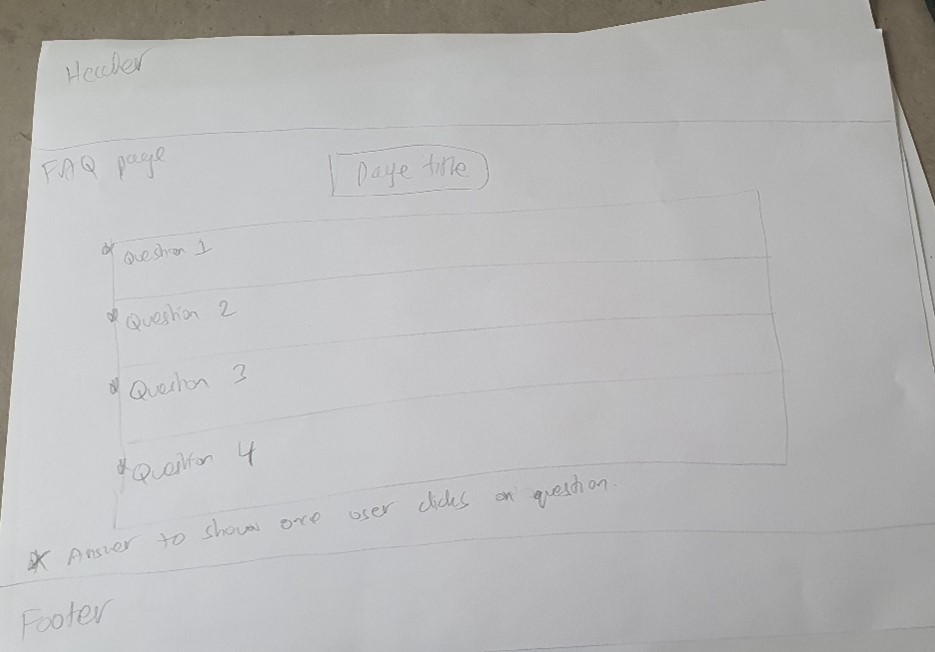 Header
FAQ page
Page title
* Question 1
* Question 2
* Question 3
* Question 4
* Answer to show one user clicks on question.
Footer